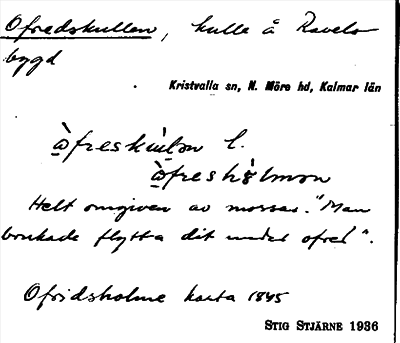 Ofredskullen, kulle å Ravels-
bygd
Kristvalla sn, N. Möre hd, Kalmar län
l.
Helt omgiven av mossar. "Man
brukade flytta dit under ofred".
Ofridsholme karta 1845
STIG STJÄRNE 1936